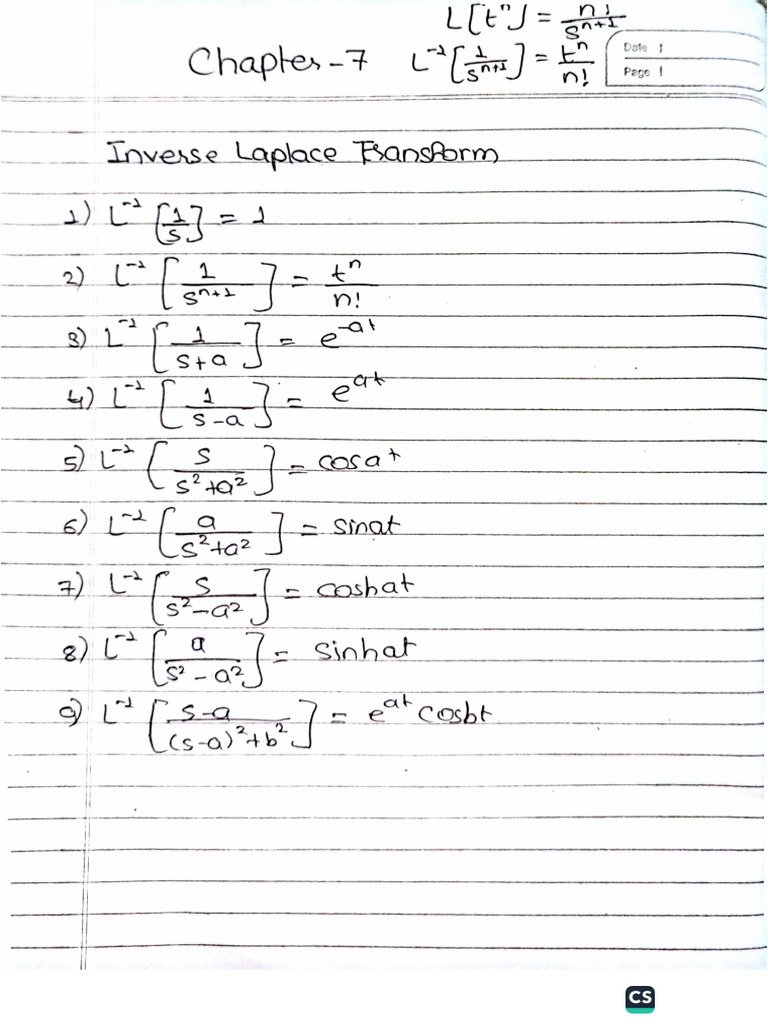 L[tⁿ] = n!/sⁿ⁺¹
Chapter-7 L⁻¹[1/sⁿ⁺¹] = tⁿ/n!
Date /
Page /
Inverse Laplace Transform
1) L⁻¹ [1/s] = 1
2) L⁻¹ [1/sⁿ⁺¹] = tⁿ/n!
3) L⁻¹ [1/(s+a)] = e⁻ᵃᵗ
4) L⁻¹ [1/(s-a)] = eᵃᵗ
5) L⁻¹ [s/(s²+a²)] = cosat
6) L⁻¹ [a/(s²+a²)] = sinat
7) L⁻¹ [s/(s²-a²)] = coshat
8) L⁻¹ [a/(s²-a²)] = sinhat
9) L⁻¹ [(s-a)/((s-a)²+b²)] = eᵃᵗ cosbt
CS